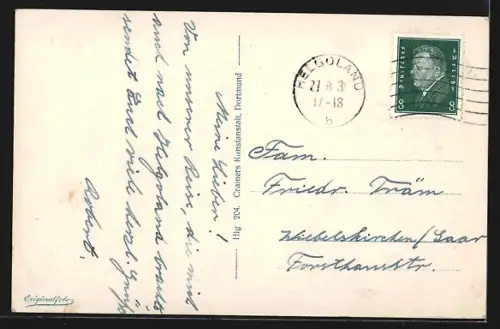 Meine Lieben!
Von unserer Reise, die mich
auch nach Helgoland brachte
sendet Euch viele herzl. Grüße
Robert.
Originalfoto
Hlg 204. Cramers Kunstanstalt, Dortmund
HELGOLAND
17-18
b
Deutsches Reich
8 8
Fam.
Friedr. Träm
Wiebelskirchen/Saar
Forsthausstr.